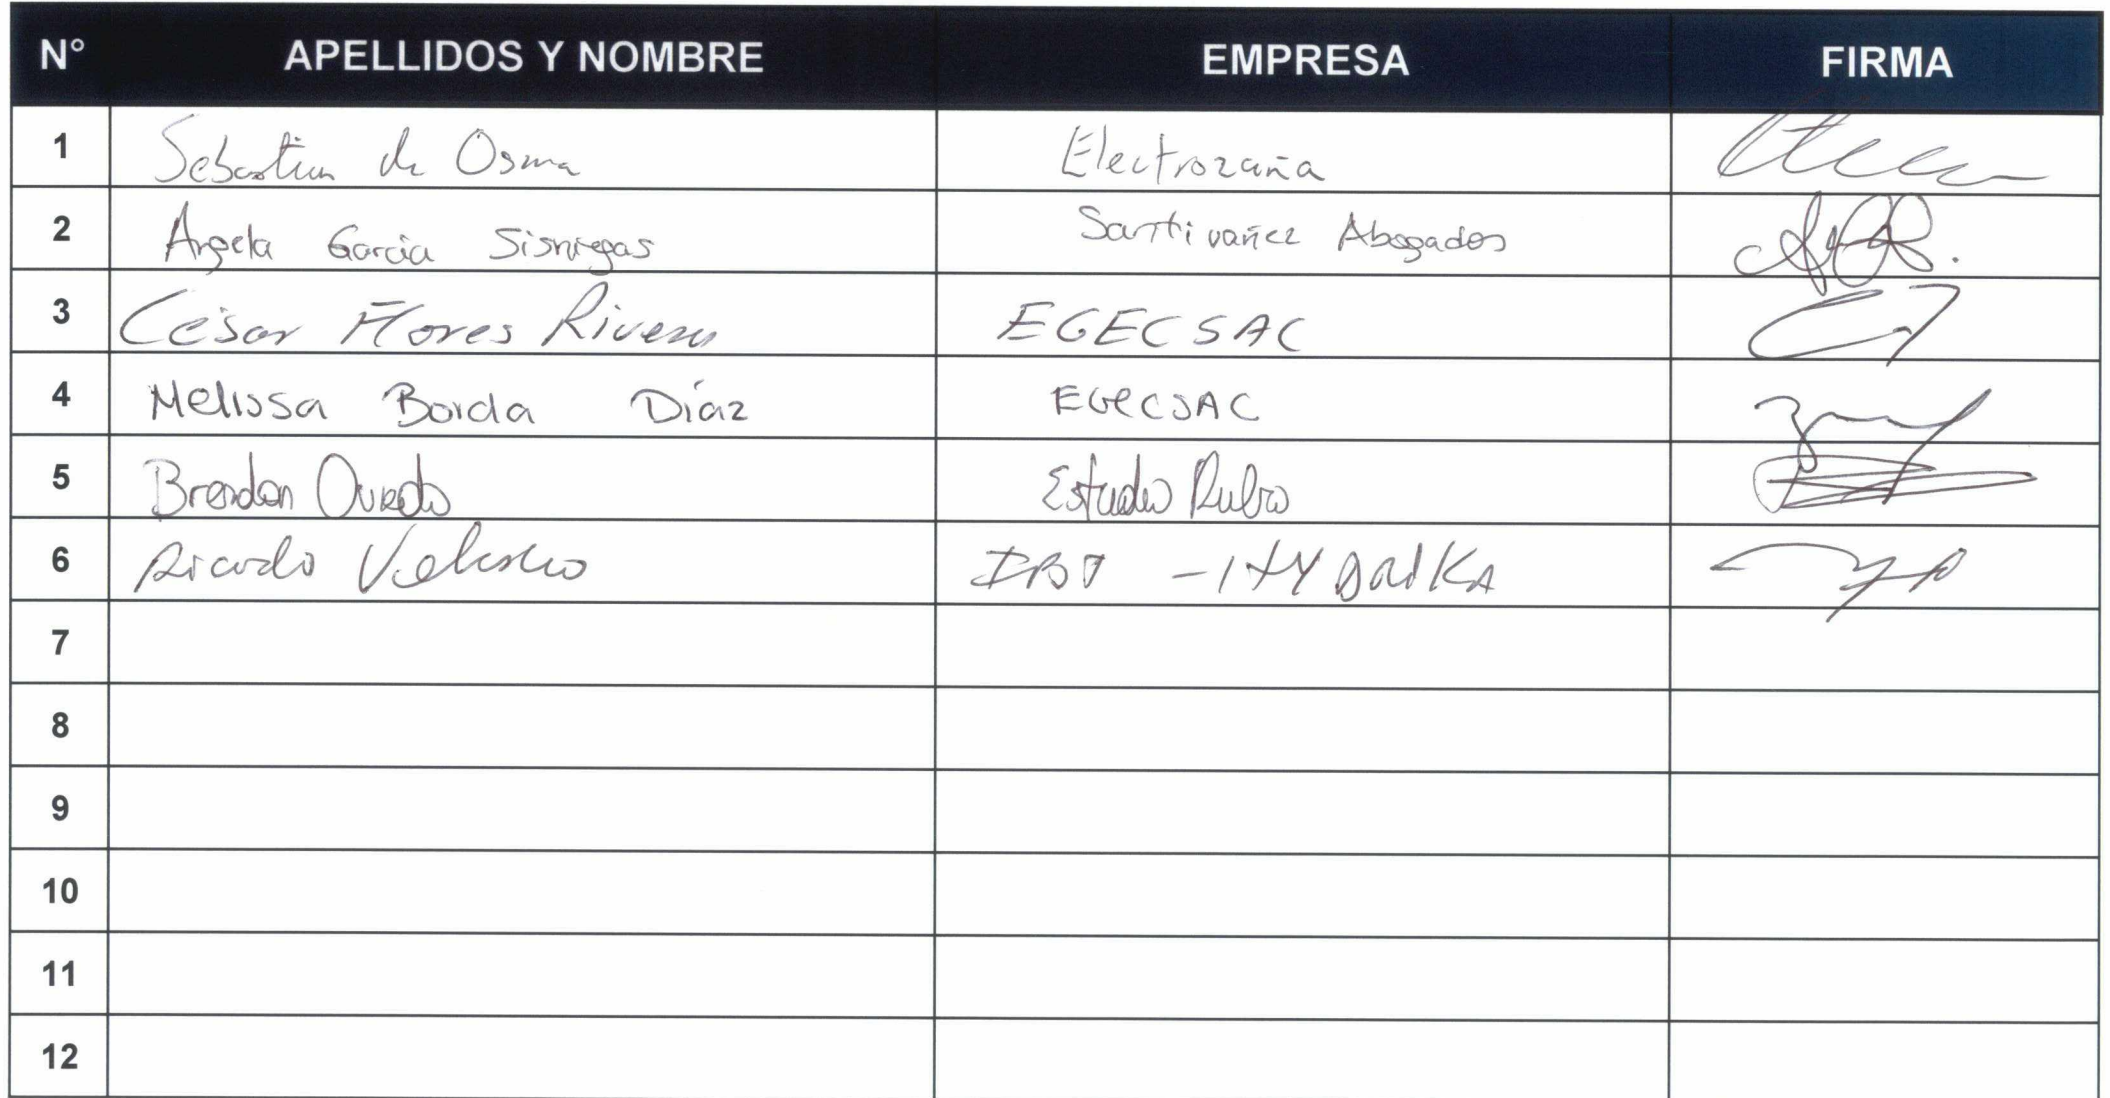 N° APELLIDOS Y NOMBRE EMPRESA FIRMA
1 Sebastian de Osma Electrozaña
2 Angela Garcia Sisniegas Santivañez Abogados
3 César Flores Rivera EGECSAC
4 Melissa Borda Díaz EGECSAC
5 Brendan Oviedo Estudio Rubio
6 Ricardo
7
8
9
10
11
12